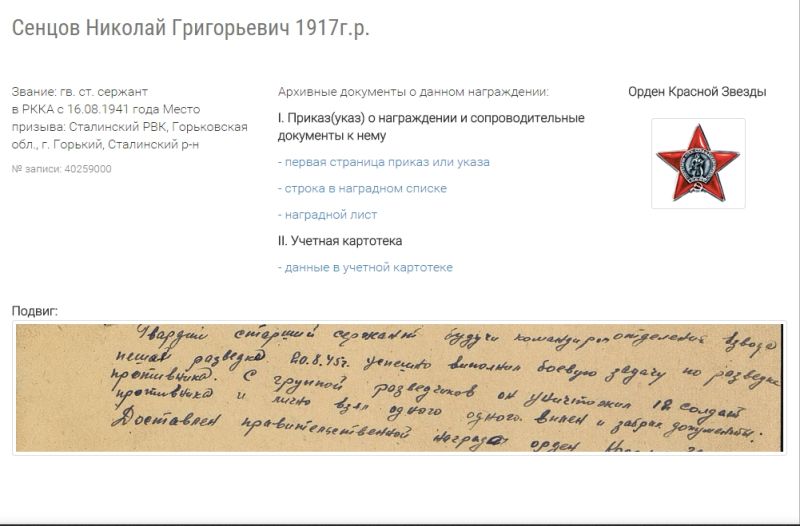 Сенцов Николай Григорьевич 1917г.р.
Звание: гв. ст. сержант
в РККА с 16.08.1941 года Место
призыва: Сталинский РВК, Горьковская
обл., г. Горький, Сталинский р-н
№ записи: 40259000
Архивные документы о данном награждении:
I. Приказ(указ) о награждении и сопроводительные
документы к нему
- первая страница приказ или указа
- строка в наградном списке
- наградной лист
II. Учетная картотека
- данные в учетной картотеке
Орден Красной Звезды
Подвиг:
Гвардии старший сержант будучи командиром отделения взвода
пешей разведки 20.8.45г. успешно выполнил боевую задачу по разведке
противника. С группой разведчиков он уничтожил 12 солдат
противника и лично взял одного одного в плен и забрал документы.
Достоен правительственной награды орден